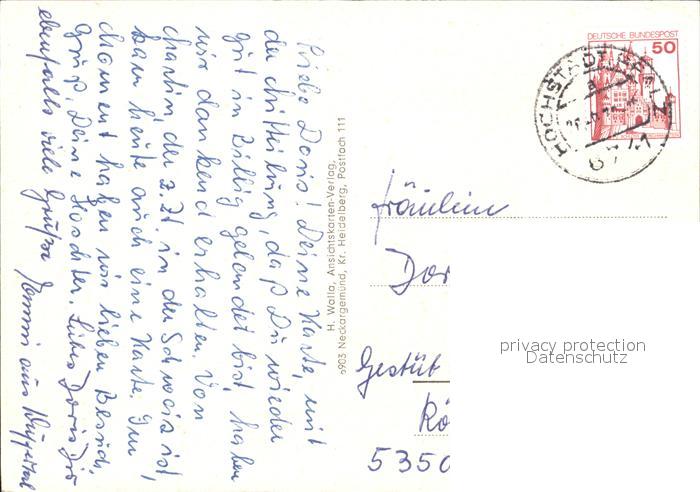 Liebe Doris! Deine Karte, mit
der Mitteilung, daß Du wieder
gut in Zillig gelandet bist, haben
wir dankend erhalten. Von
der z. Zt. in der Schweiz ist,
kam heute auch eine Karte. Im
haben wir lieben Besuch.
Gruß, Deine
ebenfalls viele Grüße
aus Wuppertal
H. Walla, Ansichtskarten-Verlag,
6903 Neckargemünd, Kr. Heidelberg, Postfach 111
DEUTSCHE BUNDESPOST
50
HOCHSTADT, PFALZ
a
6741
Fräulein
Dor
Gestüt
Rö
5350
privacy protection
Datenschutz